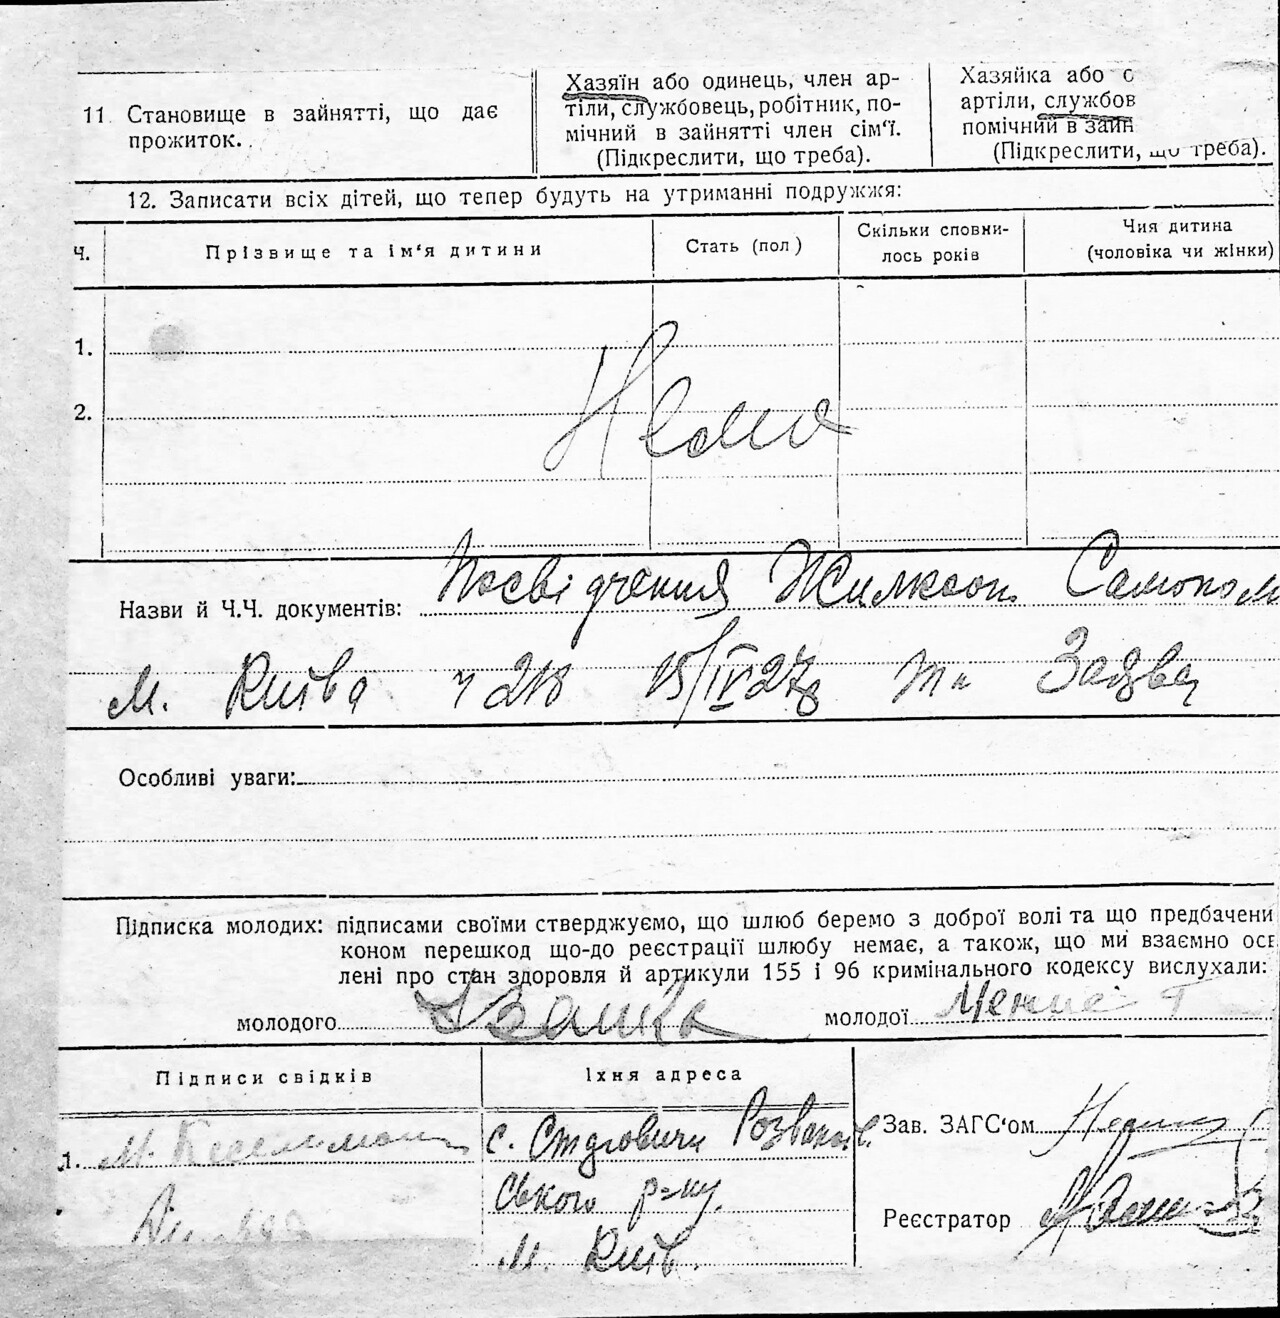 11. Становище в зайнятті, що дає
прожиток.
Хазяїн або одинець, член ар-
тіли, службовець, робітник, по-
мічний в зайнятті член сім'ї.
(Підкреслити, що треба).
Хазяйка або с
артіли, службов
помічний в зайн
(Підкреслити, що треба).
12. Записати всіх дітей, що тепер будуть на утриманні подружжя:
Ч.
Прізвище та ім'я дитини
Стать (пол)
Скільки сповни-
лось років
Чия дитина
(чоловіка чи жінки)
1.
2.
Нема
Назви й Ч.Ч. документів: Посвідчення Жилкооп. Самопом
м. Київа ч 218 15/IV 27р та Заява
Особливі уваги:
Підписка молодих: підписами своїми стверджуємо, що шлюб беремо з доброї волі та що предбачени
коном перешкод що-до реєстрації шлюбу немає, а також, що ми взаємно осв
лені про стан здоровля й артикули 155 і 96 кримінального кодексу вислухали:
молодого
молодої
Підписи свідків
Їхня адреса
1. М.
с. Розважів
ського р-ну.
м. Київ.
Зав. ЗАГС'ом
Реєстратор